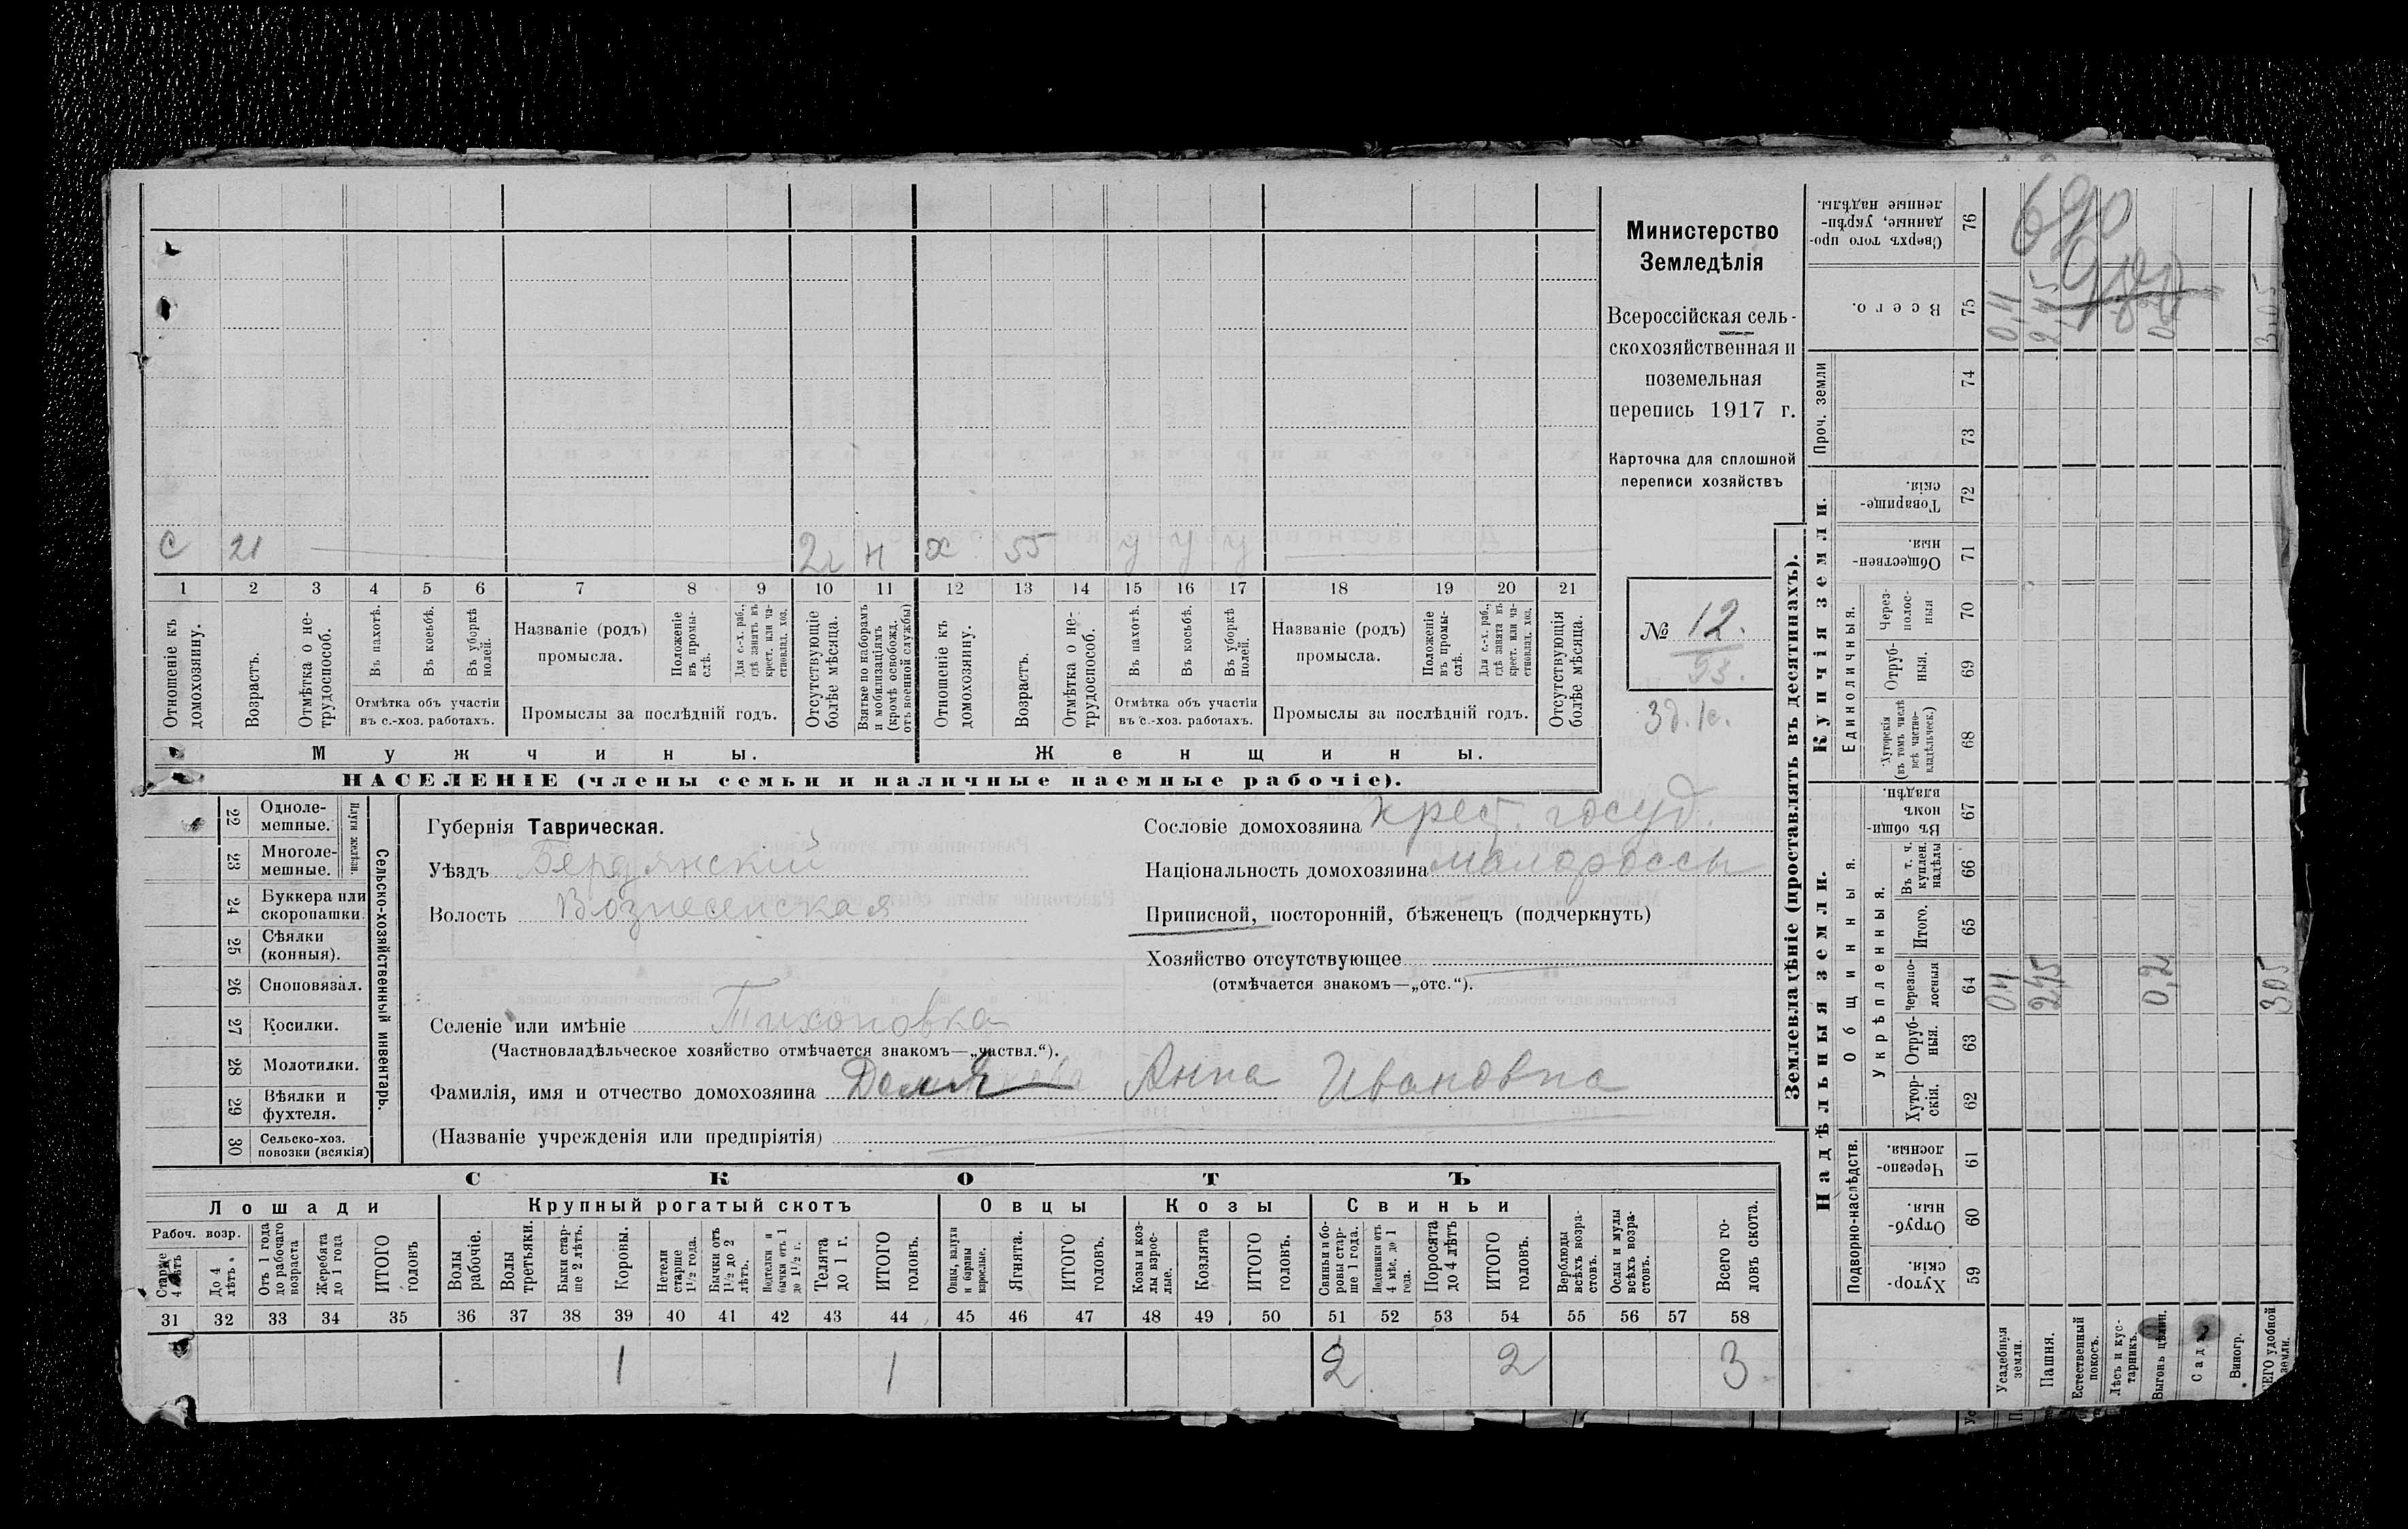 Министерство
Земледѣлія
Всероссійская сель-
скохозяйственная и
поземельная
перепись 1917 г.
Карточка для сплошной
переписи хозяйствъ
№ 12.
93.
3д. 1с.
с 21 2 н х 55 у у у
1 2 3 4 5 6 7 8 9 10 11 12 13 14 15 16 17 18 19 20 21
Отношеніе къ домохозяину.
Возрастъ.
Отмѣтка о не-трудоспособ.
Въ пахотѣ.
Въ косьбѣ.
Въ уборкѣ полей.
Отмѣтка объ участіи
въ с.-хоз. работахъ.
Названіе (родъ)
промысла.
Положеніе въ промы-слѣ.
Для с.-х. раб., гдѣ занятъ въ крест. или ча-стновлад. хоз.
Промыслы за послѣдній годъ.
Отсутствующіе болѣе мѣсяца.
Взятые по наборамъ и мобилизаціямъ (кромѣ освобожд. отъ военной службы)
Отношеніе къ домохозяину.
Возрастъ.
Отмѣтка о не-трудоспособ.
Въ пахотѣ.
Въ косьбѣ.
Въ уборкѣ полей.
Отмѣтка объ участіи
въ с.-хоз. работахъ.
Названіе (родъ)
промысла.
Положеніе въ промы-слѣ.
Для с.-х. раб., гдѣ занята въ крест. или ча-стновлад. хоз.
Промыслы за послѣдній годъ.
Отсутствующія болѣе мѣсяца.
Мужчины. Женщины.
НАСЕЛЕНІЕ (члены семьи и наличные наемные рабочіе).
22 Одноле-мешные.
23 Многоле-мешные.
Плуги желѣзн.
24 Буккера или скоропашки.
25 Сѣялки (конныя).
26 Сноповязал.
27 Косилки.
28 Молотилки.
29 Вѣялки и фухтеля.
30 Сельско-хоз. повозки (всякія)
Сельско-хозяйственный инвентарь.
Губернія Таврическая.
Уѣздъ Бердянскій
Волость Вознесенская
Селеніе или имѣніе Тихоновка
(Частновладѣльческое хозяйство отмѣчается знакомъ—„частвл.“).
Фамилія, имя и отчество домохозяина Анна Ивановна
(Названіе учрежденія или предпріятія)
Сословіе домохозяина крест. госуд.
Національность домохозяина малороссы
Приписной, посторонній, бѣженецъ (подчеркнуть)
Хозяйство отсутствующее
(отмѣчается знакомъ—„отс.“).
СКОТЪ
Лошади Крупный рогатый скотъ Овцы Козы Свиньи
Рабоч. возр.
Старше 4 лѣтъ
До 4 лѣтъ
Отъ 1 года до рабочаго возраста
Жеребята до 1 года
ИТОГО головъ
Волы рабочіе.
Волы третьяки.
Быки стар-ше 2 лѣтъ.
Коровы.
Нетели старше 1½ года.
Бычки отъ 1½ до 2 лѣтъ.
Подтелки и бычки отъ 1 до 1½ г.
Телята до 1 г.
ИТОГО головъ.
Овцы, валухи и бараны взрослые.
Ягнята.
ИТОГО головъ.
Козы и коз-лы взрос-лые.
Козлята
ИТОГО головъ.
Свиньи и бо-ровы стар-ше 1 года.
Подсвинки отъ 4 мѣс. до 1 года.
Поросята до 4 лѣтъ
ИТОГО головъ.
Верблюды всѣхъ возра-стовъ.
Ослы и мулы всѣхъ возра-стовъ.
Всего го-ловъ скота.
31 32 33 34 35 36 37 38 39 40 41 42 43 44 45 46 47 48 49 50 51 52 53 54 55 56 57 58
1 1 2 2 3
Землевладѣніе (проставлять въ десятинахъ).
Надѣльныя земли. Купчія земли. Проч. земли
Подворно-наслѣдств.
Общинныя.
Укрѣпленныя.
Единоличныя.
Хутор-скія. 59
Отруб-ныя. 60
Черезпо-лосныя. 61
Хутор-скія. 62
Отруб-ныя. 63
Черезпо-лосныя 64
Итого. 65
Въ т. ч. куплен. надѣлы 66
Въ общи-номъ владѣн. 67
Хуторскія (въ томъ числѣ всѣ частно-владѣльческ.) 68
Отруб-ныя. 69
Через-полос-ныя 70
Обществен-ныя. 71
Товарище-скія. 72
73
74
Всего. 75
Сверхъ того про-данные, укрѣп-ленные надѣлы. 76
Усадебныя земли.
Пашня.
Естественный покосъ.
Лѣсъ и кус-тарникъ.
Выгонъ цѣлин.
Садъ
Виногр.
ВСЕГО удобной земли.
0,2
305
690
0,11
2,45
3,05